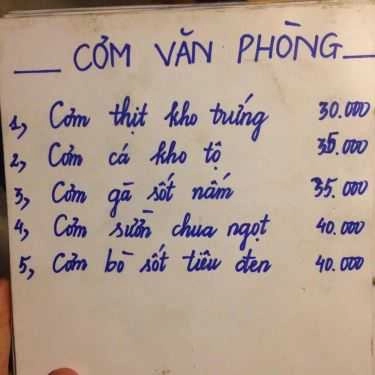 CƠM VĂN PHÒNG
1, Cơm thịt kho trứng 30.000
2, Cơm cá kho tộ 35.000
3, Cơm gà sốt nấm 35.000
4, Cơm sườn chua ngọt 40.000
5, Cơm bò sốt tiêu đen 40.000